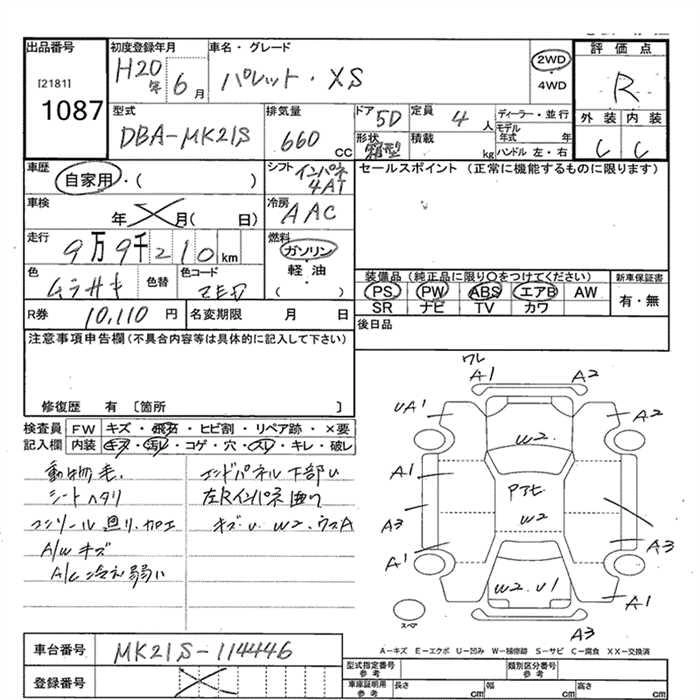 出品番号
[2181]
1087
初度登録年月
H20年 6月
車名・グレード
パレット・XS
2WD
・
4WD
評価点
R
外装 内装
C C
型式
DBA-MK21S
排気量
660 CC
ドア 5D
形状 箱型
定員 4人
積載 kg
ディーラー・並行
モデル年式 年
ハンドル 左・右
車歴
自家用・( )
シフト インパネ
4AT
車検
年 月( 日)
冷房
AAC
走行
9万9千210km
燃料
ガソリン
・
軽油
( )
色
ムラサキ
色替
色コード
ZED
R券 10,110 円
名変期限 月 日
セールスポイント (正常に機能するものに限ります)
装備品 (純正品に限り〇をつけてください)
PS PW ABS エアB AW
SR ナビ TV カワ
新車保証書
有・無
後日品
注意事項申告欄(不具合内容等は具体的に記入して下さい)
修復歴 有 〔箇所 〕
検査員 FW キズ・飛石・ヒビ割・リペア跡・×要
記入欄 内装 キズ・汚レ・コゲ・穴・スレ・キレ・破レ
動物毛.
シートヘタリ
コンソール廻り.加工
A/Wキズ
A/C冷え弱い
エンドパネル下部U
左Rインパネ曲り
キズU W2.ウスA
ワレ
A1 A2
UA1 A2
W2.
A1
Pアセ
W2
A3
A1 A3
W2.U1
A1
スペア
A3
A-キズ E-エクボ U-凹み W-補修跡 S-サビ C-腐食 XX-交換済
車台番号 MK21S-114446
登録番号
型式指定番号
参考
類別区分番号
参考
車庫証明用
参考
長さ cm 幅 cm 高さ cm